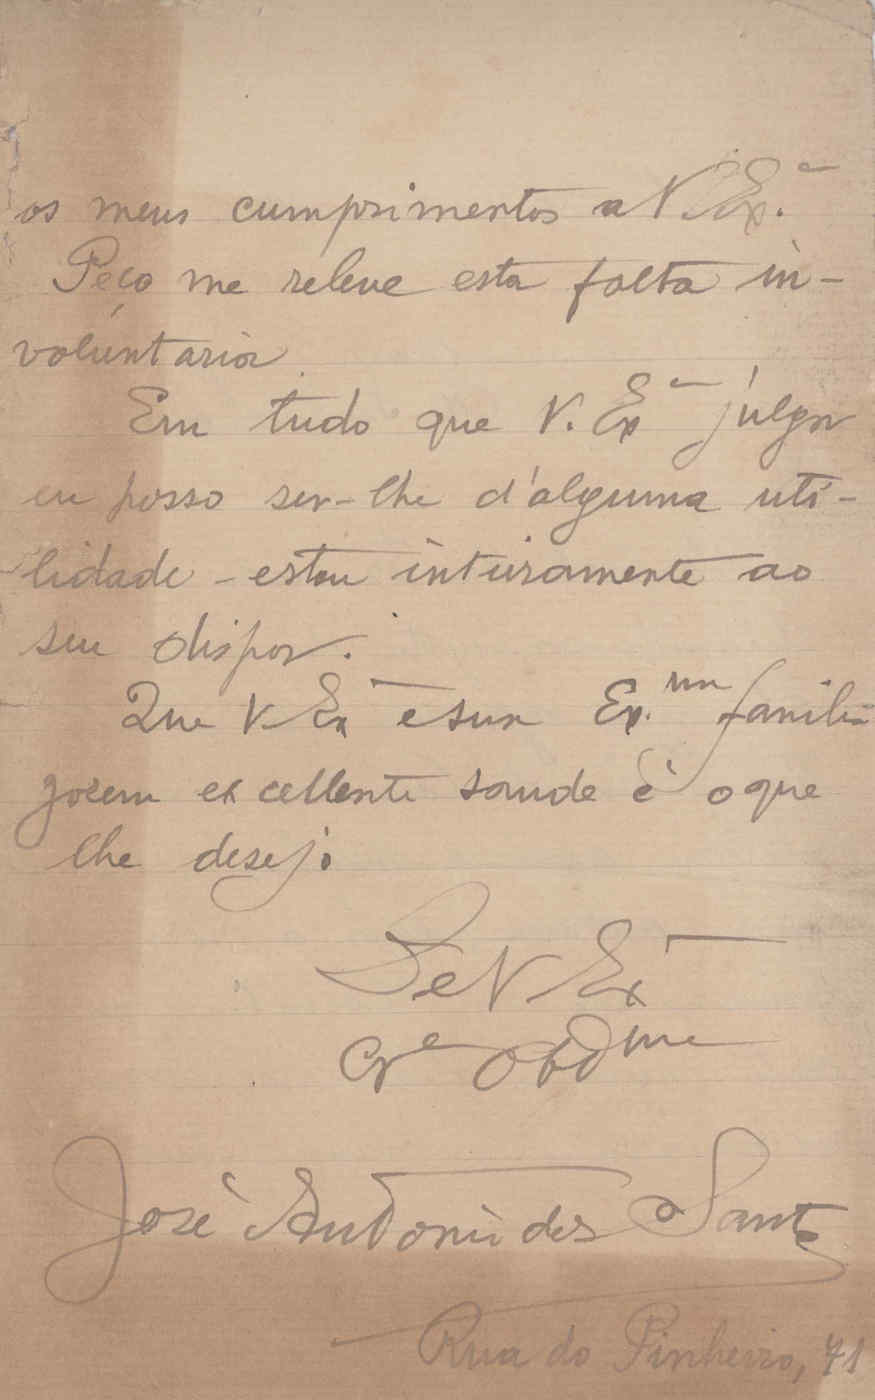 os meus cumprimentos a V. Ex.ª
Peço me releve esta falta in-
voluntaria
Em tudo que V. Exª julgar
eu posso ser-lhe d'alguma uti-
lidade - estou inteiramente ao
seu dispor.
Que V Exª e sua Ex.ma familia
gosem excellente saude é o que
lhe desejo
De V Exª
Cr.e Obdme
José Antonio dos Santos
Rua do Pinheiro, 71